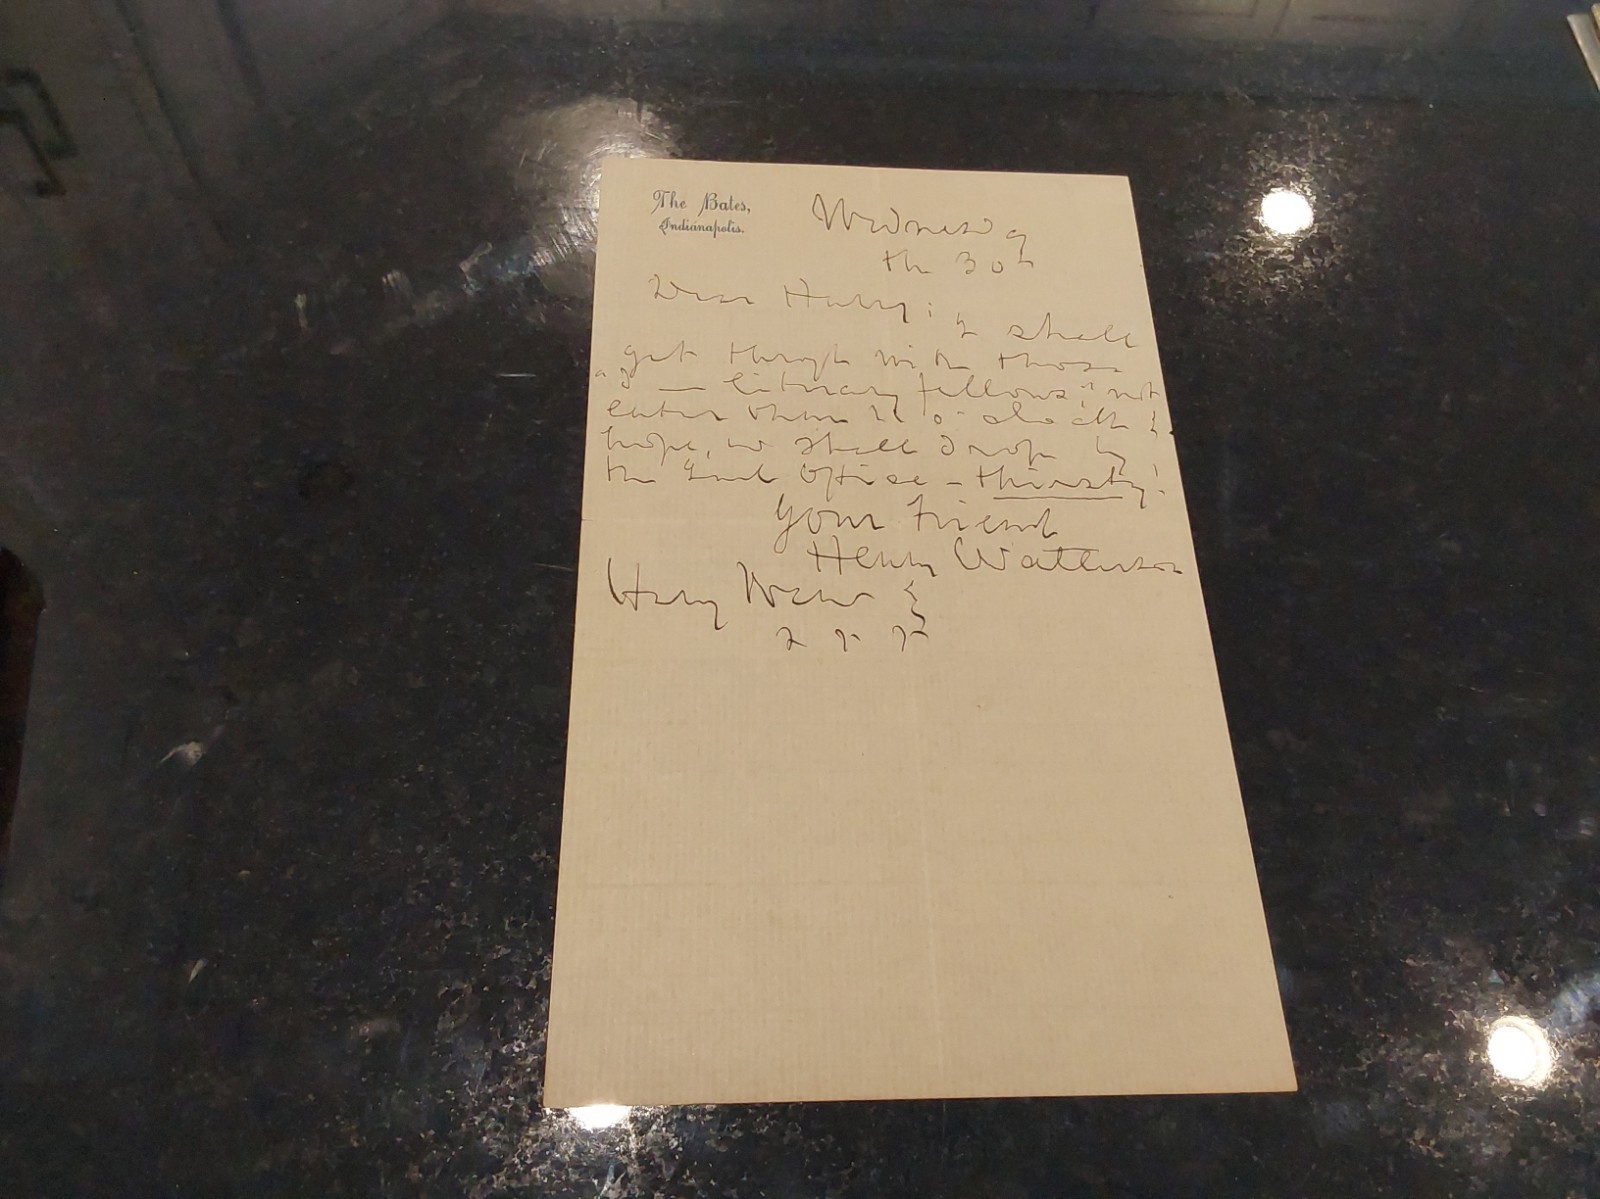 The Bates,
Indianapolis.
Wednesday
the 30th
Dear Harry: I shall
get through with those
" — literary fellows," not
later than 11 o'clock &
hope, we shall drop by
the Office — thirsty!
Your friend
Henry Watterson
Harry }